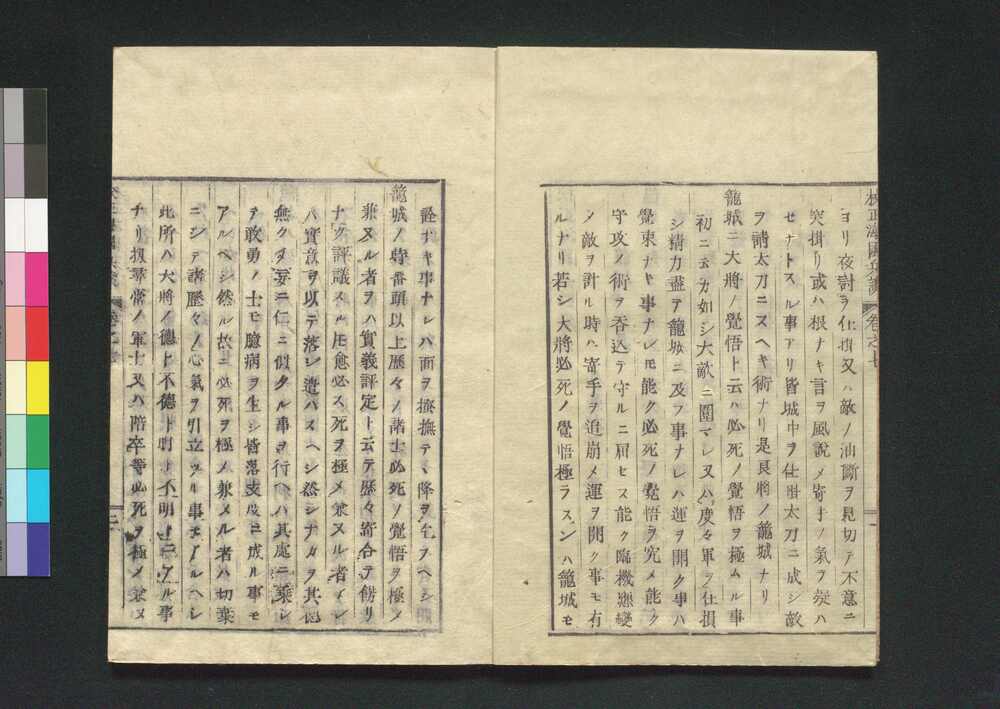 ヨリ夜討ヲ仕損又ハ敵ノ油斷ヲ見切テ不意ニ
突掛リ或ハ根ナキ言ヲ風說メ寄手ノ氣ヲ疑ハ
セナトスル事アリ皆城中ヲ仕掛太刀ニ成シ敵
ヲ請太刀ニスヘキ術ナリ是良將ノ籠城ナリ
籠城ニ大將ノ覺悟ト云ハ必死ノ覺悟ヲ極ムル事
初ニ云カ如シ大敵ニ圍マレ又ハ度々軍ヲ仕損
シ精力盡テ籠城ニ及フ事ナレハ運ヲ開ク事ハ
覺束ナキ事ナレ𪜈能ク必死ノ覺悟ヲ究メ能ク
守攻ノ術ヲ呑込テ守ルニ屈セス能ク臨機應變
メ敵ヲ計ル時ハ寄手ヲ追崩メ運ヲ開ク事モ有
ルナリ若シ大將必死ノ覺悟極ラスンハ籠城モ
詮ナキ事ナレハ面ヲ撫テ降ヲ乞フヘシ
籠城ノ時番頭以上歷々ノ諸士必死ノ覺悟ヲ極メ
兼ヌル者ヲハ實義評定ト云テ歷々寄合テ餝リ
ナク評議スル𪜈愈必ス死ヲ極メ兼ヌル者イレ
ハ實意ヲ以テ落シ遣ハスヘシ然シナカラ其德
無クメ妄ニ仁ニ似タル事ヲ行ヘハ其處ニ乘シ
テ敢勇ノ士モ臆病ヲ生シ皆落支度ニ成ル事モ
アルヘシ然ル故ニ必死ヲ極メ兼メル者ハ切棄
ニシテ諸歷々ノ心氣ヲ引立ツル事モアルヘシ
此所ハ大將ノ德ト不德ト明ト不明トニアル事
ナリ扨尋常ノ軍士又ハ陪卒等必死ヲ極メ兼メ